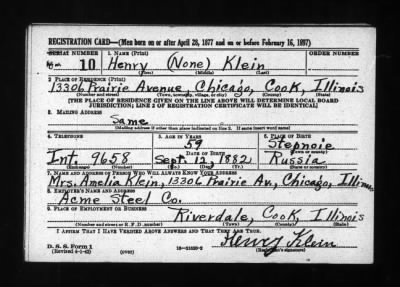 REGISTRATION CARD—(Men born on or after April 28, 1877 and on or before February 16, 1897)
SERIAL NUMBER 1. NAME (Print) ORDER NUMBER
U 10 Henry (None) Klein
(First) (Middle) (Last)
2. PLACE OF RESIDENCE (Print)
13306 Prairie Avenue, Chicago, Cook, Illinois
(Number and street) (Town, township, village, or city) (County) (State)
[THE PLACE OF RESIDENCE GIVEN ON THE LINE ABOVE WILL DETERMINE LOCAL BOARD
JURISDICTION; LINE 2 OF REGISTRATION CERTIFICATE WILL BE IDENTICAL]
3. MAILING ADDRESS
Same
[Mailing address if other than place indicated on line 2. If same insert word same]
4. TELEPHONE 5. AGE IN YEARS 6. PLACE OF BIRTH
59 Stepnoie
DATE OF BIRTH (Town or county)
Int. 9658 Sept. 12, 1882 Russia
(Exchange) (Number) (Mo.) (Day) (Yr.) (State or country)
7. NAME AND ADDRESS OF PERSON WHO WILL ALWAYS KNOW YOUR ADDRESS
Mrs. Amelia Klein, 13306 Prairie Av., Chicago, Illinois
8. EMPLOYER'S NAME AND ADDRESS
Acme Steel Co.
9. PLACE OF EMPLOYMENT OR BUSINESS
Riverdale, Cook, Illinois
(Number and street or R. F. D. number) (Town) (County) (State)
I AFFIRM THAT I HAVE VERIFIED ABOVE ANSWERS AND THAT THEY ARE TRUE.
D. S. S. Form 1
(Revised 4-1-42) (over) Henry Klein
(Registrant's signature)